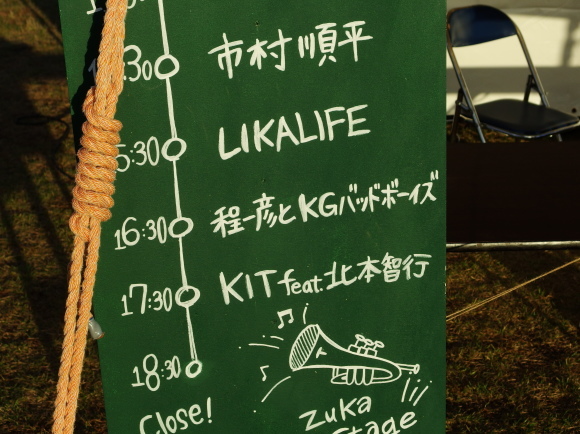 :30 市村順平
5:30 LIKALIFE
16:30 程一彦とKGバッドボーイズ
17:30 KIT feat. 北本智行
18:30
Close!
Zuka
Stage